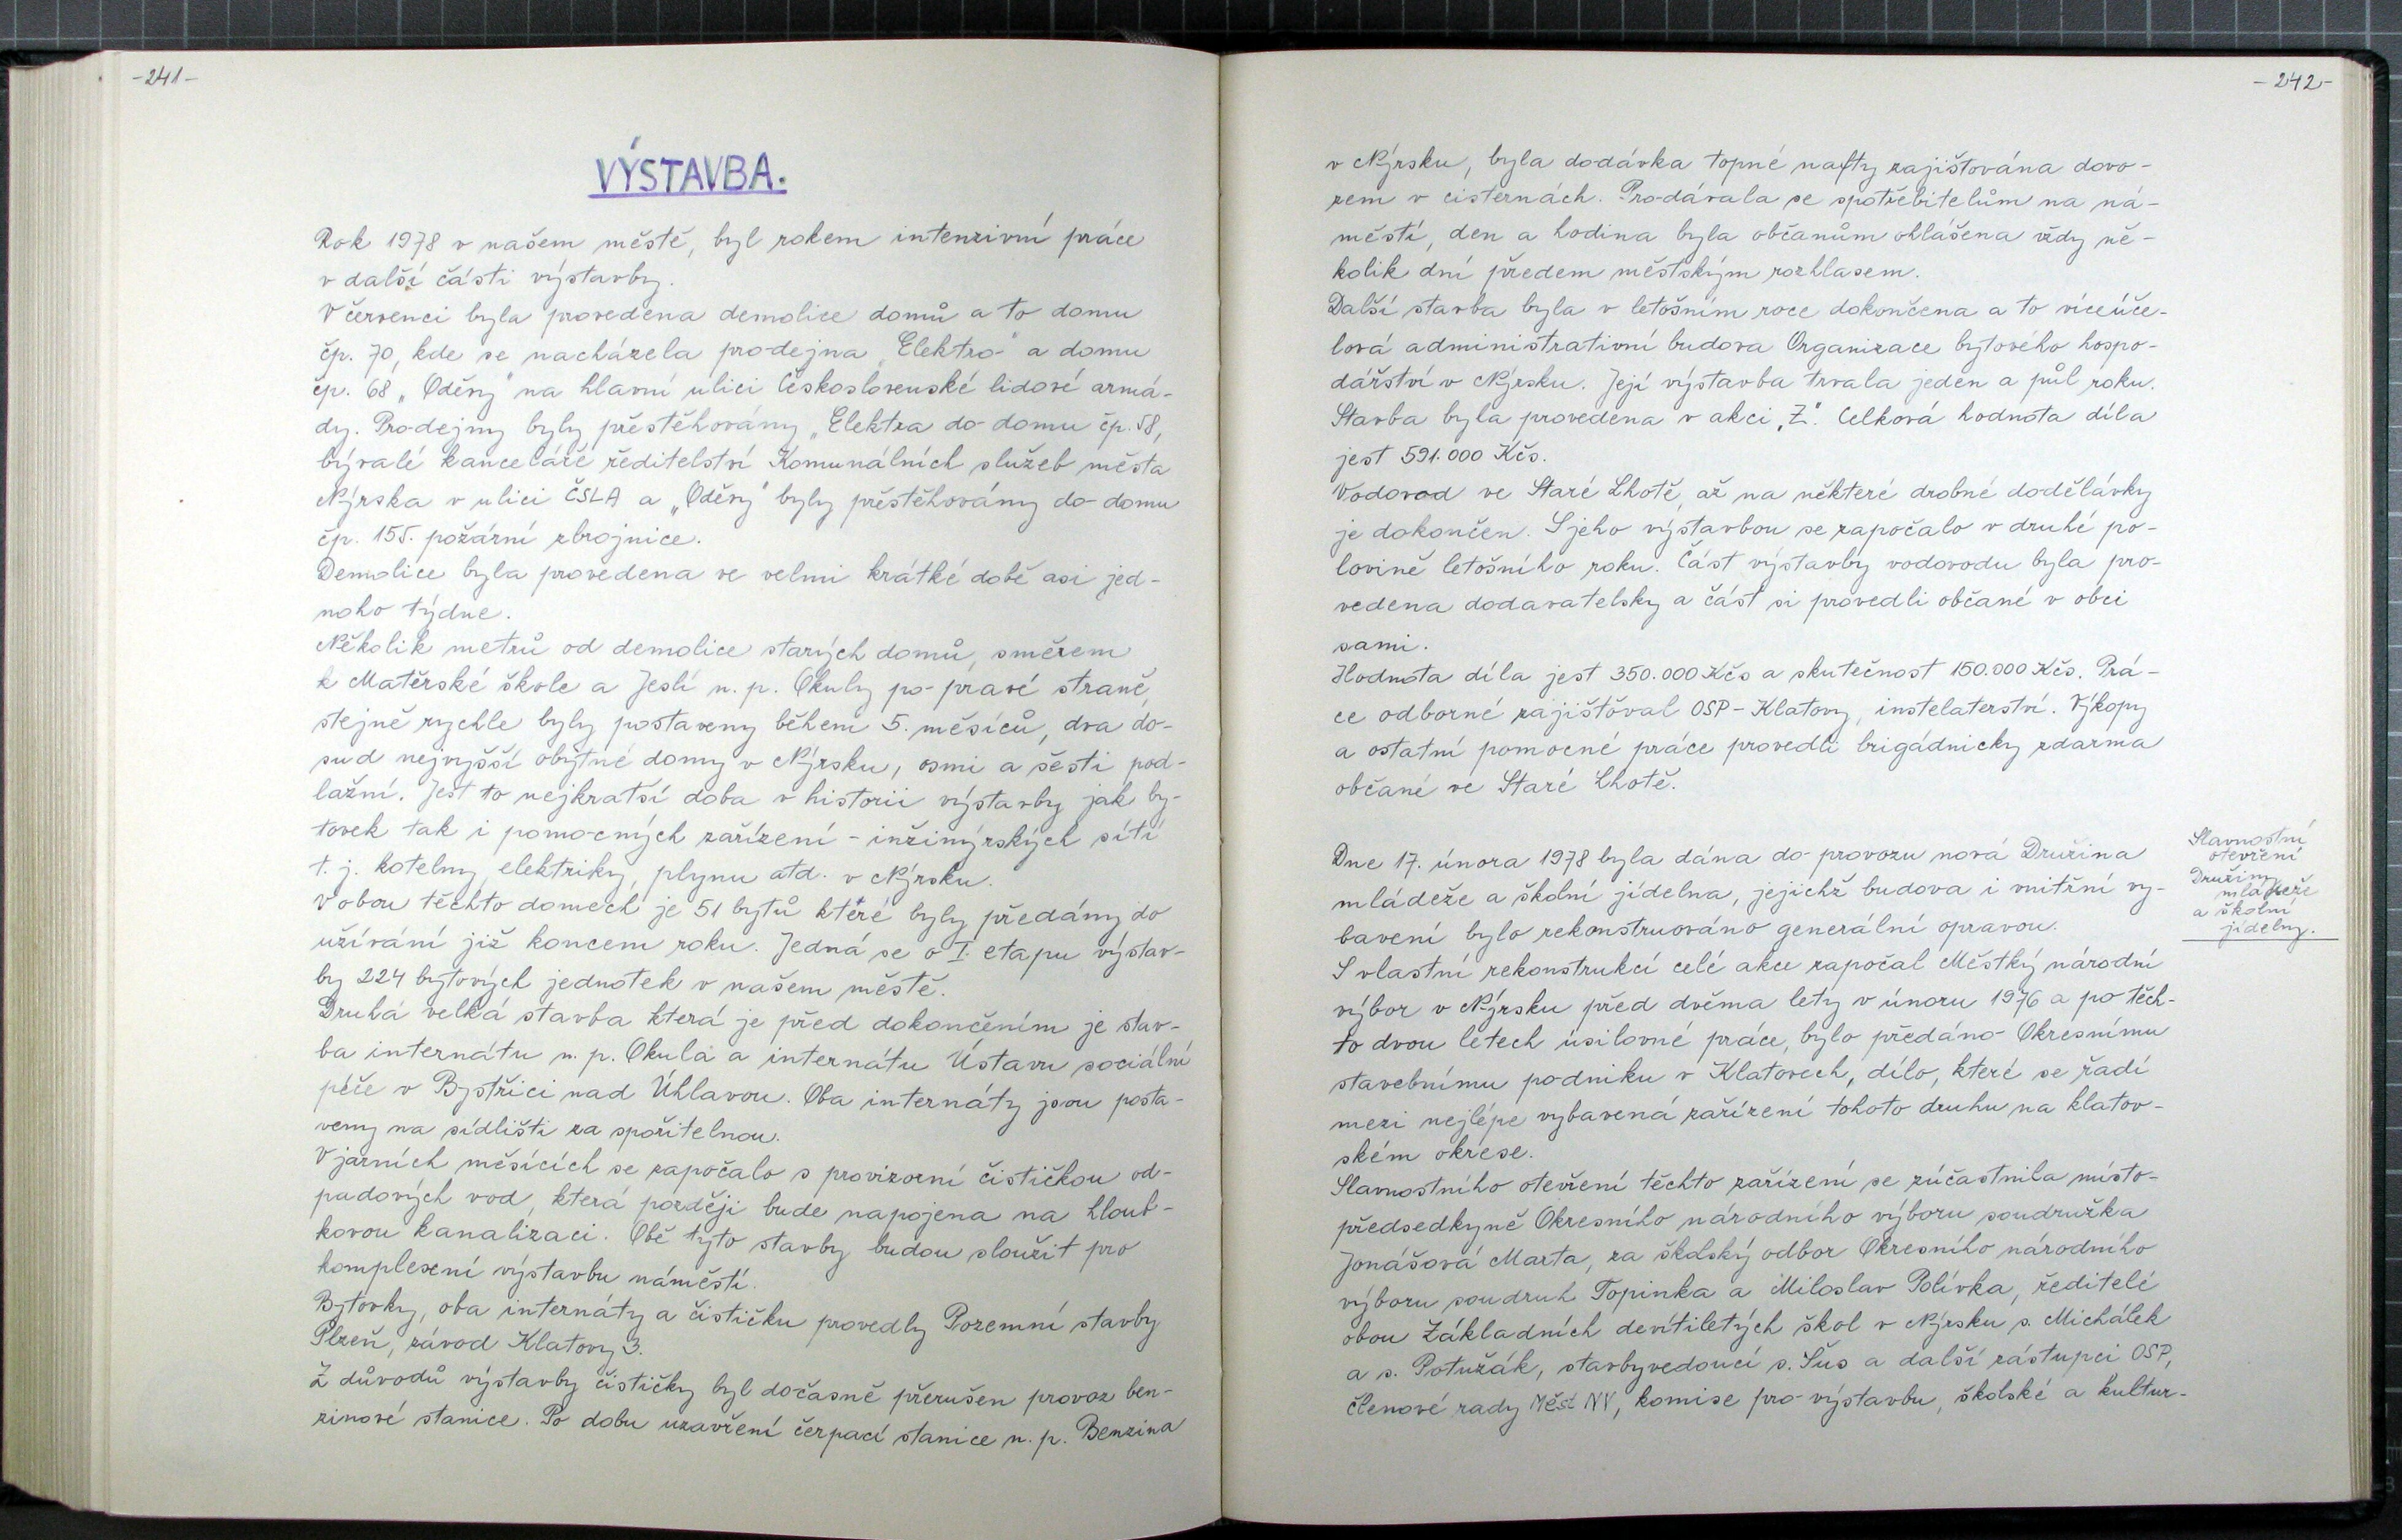 -241-
VÝSTAVBA.
Rok 1978 v našem městě, byl rokem intenzivní práce
v další části výstavby.
V červenci byla provedena demolice domů a to domu
čp. 70, kde se nacházela prodejna „Elektro" a domu
čp. 68 „Oděvy" na hlavní ulici Československé lidové armá-
dy. Prodejny byly přestěhovány „Elektra do domu čp. 58,
bývalé kanceláře ředitelství Komunálních služeb města
Nýrska v ulici ČSLA a „Oděvy" byly přestěhovány do domu
čp. 155. požární zbrojnice.
Demolice byla provedena ve velmi krátké době asi jed-
noho týdne.
Několik metrů od demolice starých domů, směrem
k Mateřské škole a Jeslí n. p. Okuly po pravé straně,
stejně rychle byly postaveny během 5. měsíců, dva do-
sud nejvyšší obytné domy v Nýrsku, osmi a šesti pod-
lažní. Jest to nejkratší doba v historii výstavby jak by-
tovek tak i pomocných zařízení - inžinýrských sítí
t. j. kotelny, elektriky, plynu atd. v Nýrsku.
V obou těchto domech je 51 bytů které byly předány do
užívání již koncem roku. Jedná se o I. etapu výstav-
by 224 bytových jednotek v našem městě.
Druhá velká stavba která je před dokončením je stav-
ba internátu n. p. Okula a internátu Ústavu sociální
péče v Bystřici nad Úhlavou. Oba internáty jsou posta-
veny na sídlišti za spořitelnou.
V jarních měsících se započalo s provizorní čističkou od-
padových vod, která později bude napojena na hloub-
kovou kanalizaci. Obě tyto stavby budou sloužit pro
komplexní výstavbu náměstí.
Bytovky, oba internáty a čističku provedly Pozemní stavby
Plzeň, závod Klatovy 3.
Z důvodů výstavby čističky byl dočasně přerušen provoz ben-
zinové stanice. Po dobu uzavření čerpací stanice n. p. Benzina
-242-
v Nýrsku, byla dodávka topné nafty zajištována dovo-
zem v cisternách. Prodávala se spotřebitelům na ná-
městí, den a hodina byla občanům ohlášena vždy ně-
kolik dní předem městským rozhlasem.
Další stavba byla v letošním roce dokončena a to víceúče-
lová administrativní budova Organizace bytového hospo-
dářství v Nýrsku. Její výstavba trvala jeden a půl roku.
Stavba byla provedena v akci „Z". Celková hodnota díla
jest 591.000 Kčs.
Vodovod ve Staré Lhotě, až na některé drobné dodělávky
je dokončen. S jeho výstavbou se započalo v druhé po-
lovině letošního roku. Část výstavby vodovodu byla pro-
vedena dodavatelsky a část si provedli občané v obci
sami.
Hodnota díla jest 350.000 Kčs a skutečnost 150.000 Kčs. Prá-
ce odborné zajištoval OSP - Klatovy, instelaterství. Výkopy
a ostatní pomocné práce provedli brigádnicky zdarma
občané ve Staré Lhotě.
Dne 17. února 1978 byla dána do provozu nová Družina
mládeže a školní jídelna, jejichž budova i vnitřní vy-
bavení bylo rekonstruováno generální opravou.
S vlastní rekonstrukcí celé akce započal Městký národní
výbor v Nýrsku před dvěma lety v únoru 1976 a po těch-
to dvou letech úsilovné práce, bylo předáno Okresnímu
stavebnímu podniku v Klatovech, dílo, které se řadí
mezi nejlépe vybavená zařízení tohoto druhu na klatov-
ském okrese.
Slavnostního otevření těchto zařízení se zúčastnila místo-
předsedkyně Okresního národního výboru soudružka
Jonášová Marta, za školský odbor Okresního národního
výboru soudruh Topinka a Miloslav Polívka, ředitelé
obou Základních devítiletých škol v Nýrsku s. Michálek
a s. Potužák, stavbyvedoucí s. Šus a další zástupci OSP,
členové rady Měst NV, komise pro výstavbu, školské a kultur-
Slavnostní
otevření
Družiny
mládeže
a školní
jídelny.